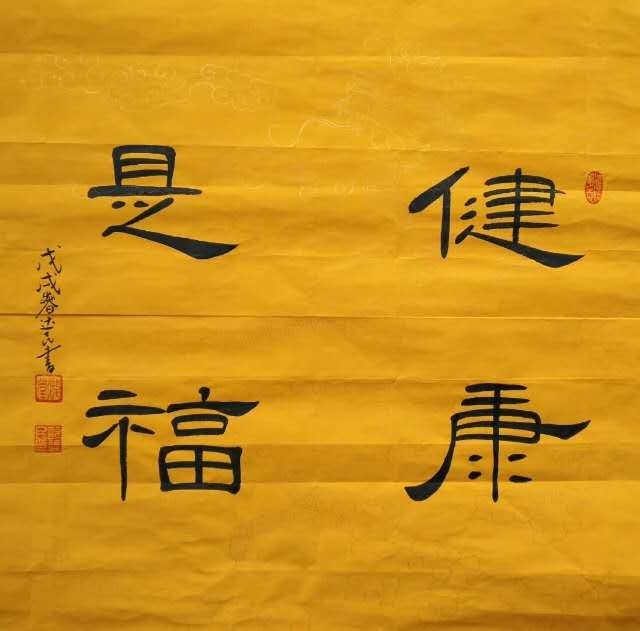 健康
是福
戊戌春
书